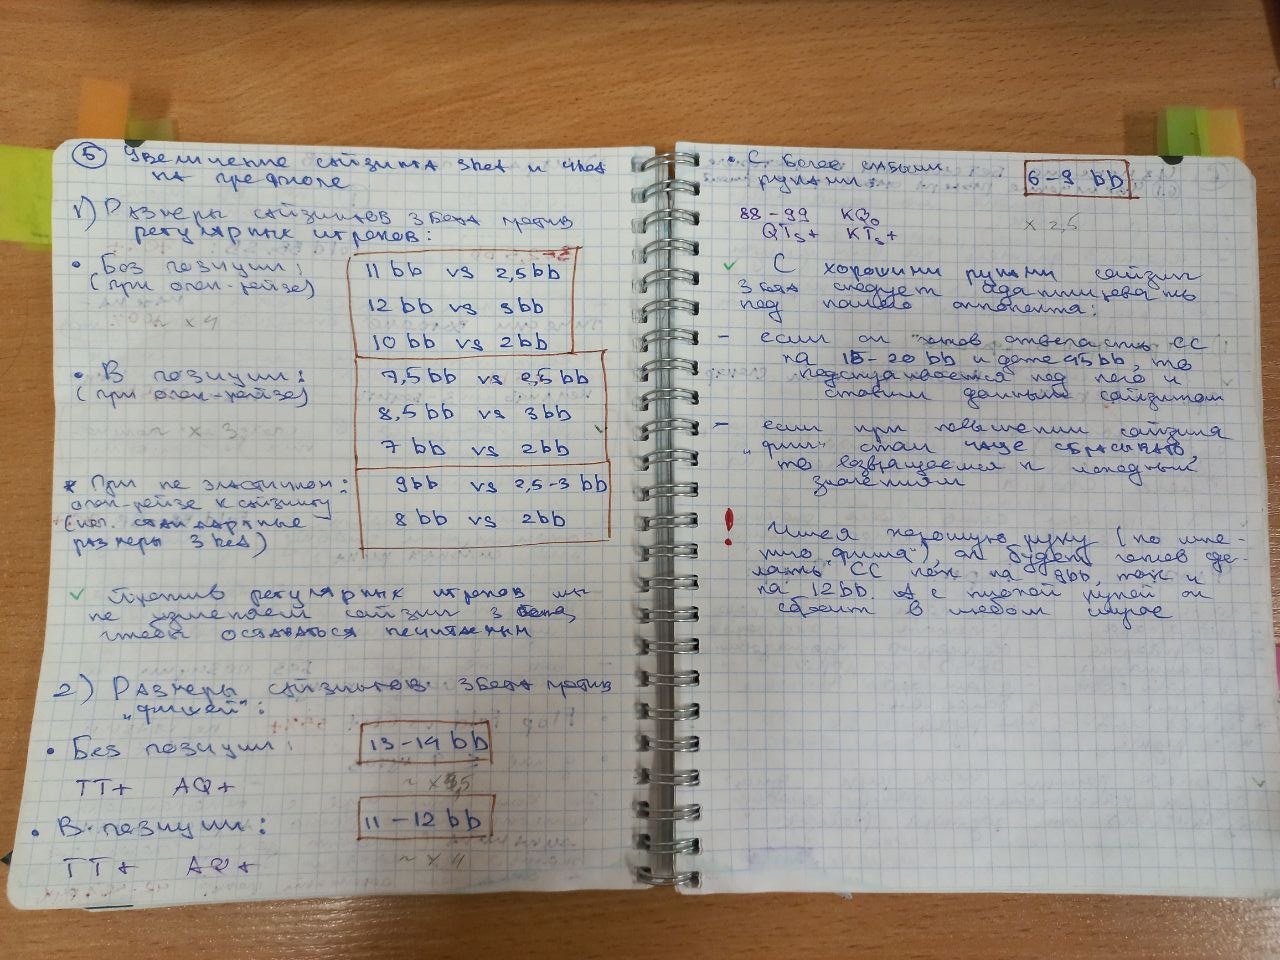 5 Увеличение сайзинга 3bet и 4bet
на префлопе
1) Размеры сайзингов 3бета против
регулярных игроков:
• Без позиции:
(при опен-рейзе)
~ x 4
11 bb vs 2,5 bb
12 bb vs 3bb
10 bb vs 2bb
• В позиции:
(при опен-рейзе)
~ x 3
7,5 bb vs 2,5 bb
8,5 bb vs 3bb
7 bb vs 2bb
* При не эластичном:
опен-рейзе к сайзингу
(исп. стандартные
размеры 3bet)
9bb vs 2,5-3 bb
8 bb vs 2bb
✓ Против регулярных игроков мы
не изменяем сайзинг 3 бета,
чтобы оставаться нечитаемым
2) Размеры сайзингов 3бета против
„фишей“:
• Без позиции:
13-14 bb
TT+ AQ+
~ x 4,5
• В позиции:
11-12 bb
TT+ AQ+
~ x 4
• С более слабыми
руками:
6-9 bb
88-99 KQo
QTs+ KTs+
x 2,5
✓ С хорошими руками сайзинг
3бета следует адаптировать
под нашего оппонента:
- если он готов отвечать СС
на 15-20 bb и даже 45bb, то
подстраиваемся под него и
ставим данный сайзингом
- если при повышении сайзинга
„фиш“ стал чаще сбрасывать,
то возвращаемся к исходным
значениям
! Имея хорошую руку (по мне-
нию „фиша“), он будет готов сде-
лать СС как на 9bb, так и
на 12bb. А с плохой рукой он
сбросит в любом случае